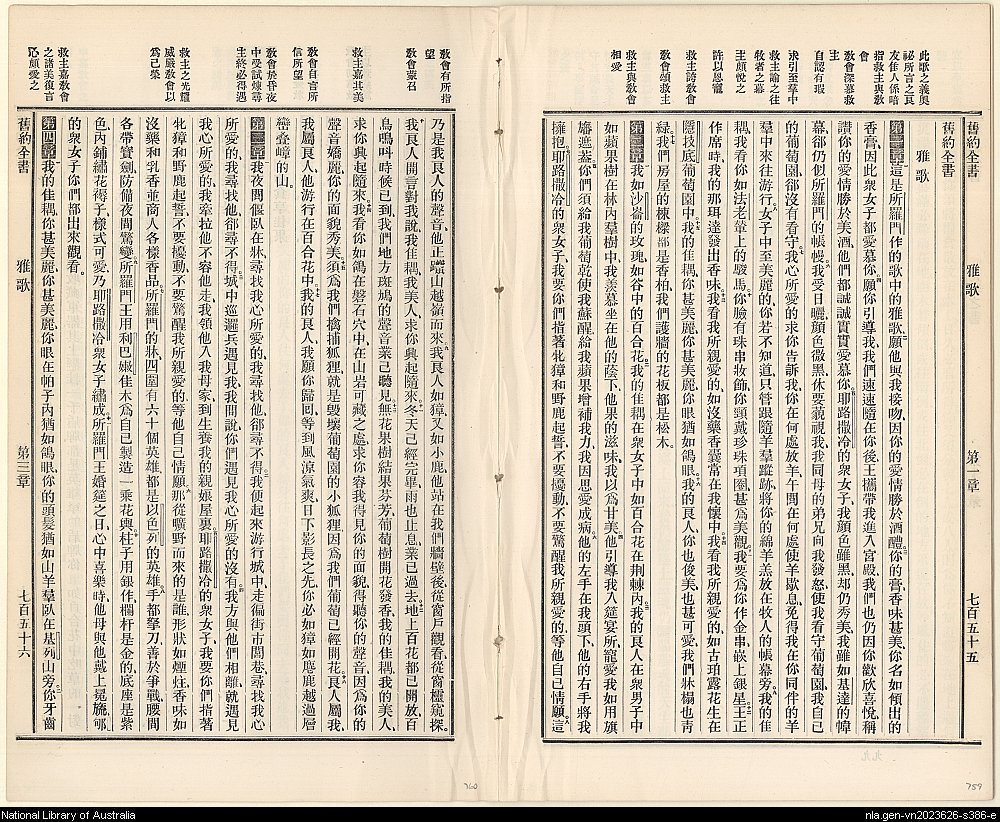 此歌之義奧
祕所言之良
友佳人係暗
指救主與敎
會
敎會深慕救
主
自認有瑕
求引至羣中
救主諭之往
牧者之幕
主頗悅之
許以恩寵
救主誇敎會
敎會頌救主
救主與敎會
相愛
舊約全書
雅歌
第一章
七百五十五
舊約全書
雅歌
第一章這是所羅門作的歌中的雅歌願他與我接吻因你的愛情勝於酒醴你的膏香味甚美你名如傾出的
香膏因此衆女子都愛慕你願你引導我我們速速隨在你後王攜帶我進入宮殿我們也仍因你歡欣喜悅稱
讚你的愛情勝於美酒他們都誠誠實實愛慕你耶路撒冷的衆女子我顏色雖黑却仍秀美我雖如基達的幃
幕卻仍似所羅門的帳幔我受日曬顏色微黑休要藐視我我同母的弟兄向我發怒使我看守葡萄園我自己
的葡萄園卻沒有看守我心所愛的求你告訴我你在何處放羊午間在何處使羊歇息免得我在你同伴的羊
羣中來往游行女子中至美麗的你若不知道只管跟隨羊羣蹤跡將你的綿羊羔放在牧人的帳幕旁我的佳
耦我看你如法老輦上的駿馬你臉有珠串妝飾你頸戴珍珠項圈甚爲美觀我要爲你作金串嵌上銀星王正
作席時我的那珥達發出香味我看我所親愛的如沒藥香囊常在我懷中我看我所親愛的如古珀露花生在
隱技底葡萄園中我的佳耦你甚美麗你甚美麗你眼猶如鴿眼我的良人你也俊美也甚可愛我們牀榻也靑
綠我們房屋的棟樑都是香柏我們護牆的花板都是松木
第二章我如沙崙的玫瑰如谷中的百合花我的佳耦在衆女子中如百合花在荆棘內我的良人在衆男子中
如蘋果樹在林內羣樹中我羨慕坐在他的蔭下他果的滋味我以爲甘美他引導我入筵宴所寵愛我如用旗
旛遮蓋你們須給我葡萄乾使我蘇醒給我蘋果增補我力我因思愛成病他的左手在我頭下他的右手將我
擁抱耶路撒冷的衆女子我要你們指著牝獐和野鹿起誓不要擾動不要驚醒我所親愛的等他自己情願這
敎會有所指
望
敎會蒙召
救主嘉其美
敎會自言所
信所望
敎會於昏夜
中受試煉尋
主終必得遇
救主之光耀
威嚴敎會以
爲己榮
救主嘉敎會
之諸美復言
乃是我良人的聲音他正躥山越嶺而來我良人如獐又如小鹿他站在我們牆壁後從窗戶觀看從窗櫺窺探
我良人開言對我說我佳耦我美人求你興起隨來冬天已經完畢雨也止息業已過去地上百花都已開放百
鳥鳴叫時候已到我們地方斑鳩的聲音業已聽見無花果樹結果芬芳葡萄樹開花發香我的佳耦我的美人
求你興起隨來我看你如鴿在磐石穴中在山岩可藏之處求你容我得見你的面貌得聽你的聲音因爲你的
聲音嬌麗你的面貌秀美須爲我們擒捕狐狸就是毀壞葡萄園的小狐狸因爲我們葡萄已經開花良人屬我
我屬良人他游行在百合花中我的良人我願你歸回等到風涼氣爽日下影長之先你必如獐如鹿越過層
巒叠嶂的山
第三章我夜間偃臥在牀尋找我心所愛的我尋找他卻尋不得我便起來游行城中走徧街市閭巷尋找我心
所愛的我尋找他卻尋不得城中巡邏兵遇見我我問說你們遇見我心所愛的沒有我方與他們相離就遇見
我心所愛的我牽拉他不容他走我領他入我母家到生養我的親娘屋裏耶路撒冷的衆女子我要你們指著
牝獐和野鹿起誓不要擾動不要驚醒我所親愛的等他自己情願那從曠野而來的是誰形狀如煙柱香味如
沒藥和乳香並商人各樣香品所羅門的牀四圍有六十個英雄都是以色列的英雄手都拏刀善於爭戰腰間
各帶寶劍防備夜間驚變所羅門王用利巴嫩佳木爲自己製造一乘花輿柱子用銀作欄杆是金的底座是紫
色內鋪繡花褥子樣式可愛乃耶路撒冷衆女子繡成所羅門王婚筵之日心中喜樂時他母與他戴上冕旒郇
的衆女子你們都出來觀看
第四章我的佳耦你甚美麗你甚美麗你眼在帕子內猶如鴿眼你的頭髮猶如山羊羣臥在基列山旁你牙齒
舊約全書
雅歌
第三章
七百五十六
760
759
National Library of Australia
nla.gen-vn2023626-s386-e